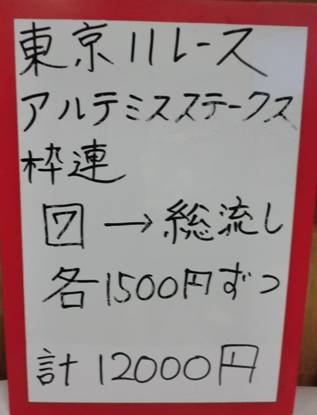 東京11レース
アルテミスステークス
枠連
7 → 総流し
各1500円ずつ
計12000円